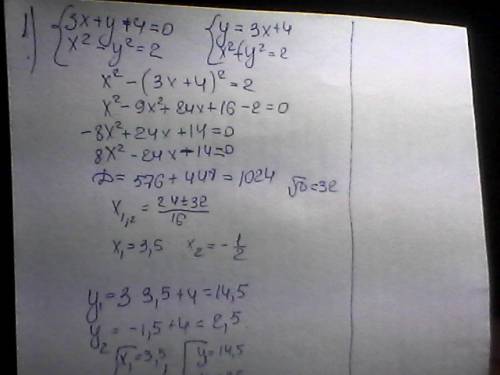 1) { 3x+y+4=0 { y=3x+4
x²-y²=2 x²+y²=2
x²-(3x+4)²=2
x²-9x²+24x+16-2=0
-8x²+24x+14=0
8x²-24x+14=0
D=576+448=1024 √D=32
x₁,₂=24±32/16
x₁=3,5 x₂=-1/2
y₁=3 3,5+4=14,5
y₂=-1,5+4=2,5
{ x₁=3,5, { y=14,5